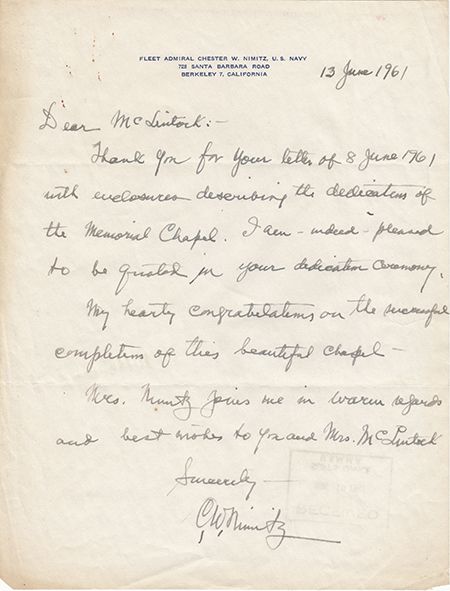 FLEET ADMIRAL CHESTER W. NIMITZ, U.S. NAVY
723 SANTA BARBARA ROAD
BERKELEY 7, CALIFORNIA
13 June 1961
Dear McLintock:-
Thank you for your letter of 8 June 1961
with enclosures describing the dedication of
the Memorial Chapel. I am - indeed - pleased
to be quoted in your dedication ceremony.
My hearty congratulations on the successful
completion of this beautiful chapel -
Mrs. Nimitz joins me in warm regards
and best wishes to you and Mrs. McLintock
Sincerely -
C.W. Nimitz
RECEIVED